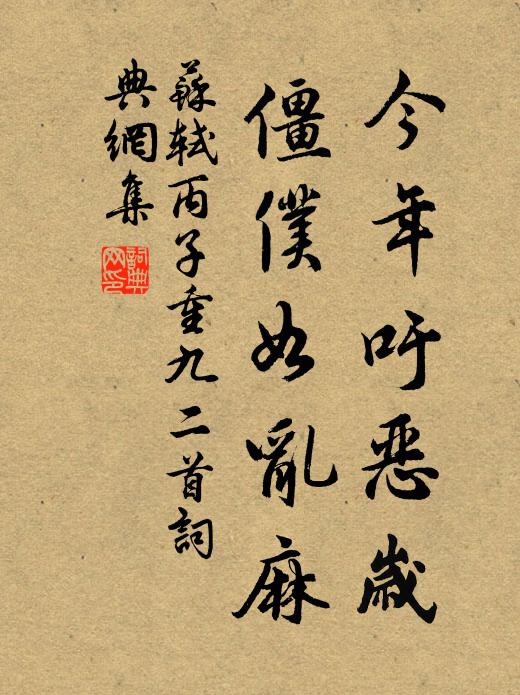 今年吁惡歲
僵僕如亂麻
蘇軾丙子重九二首詞
典網集
詞典網印